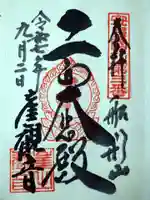 奉拝
船形山
大悲殿
崖観音
令和七年
九月二日